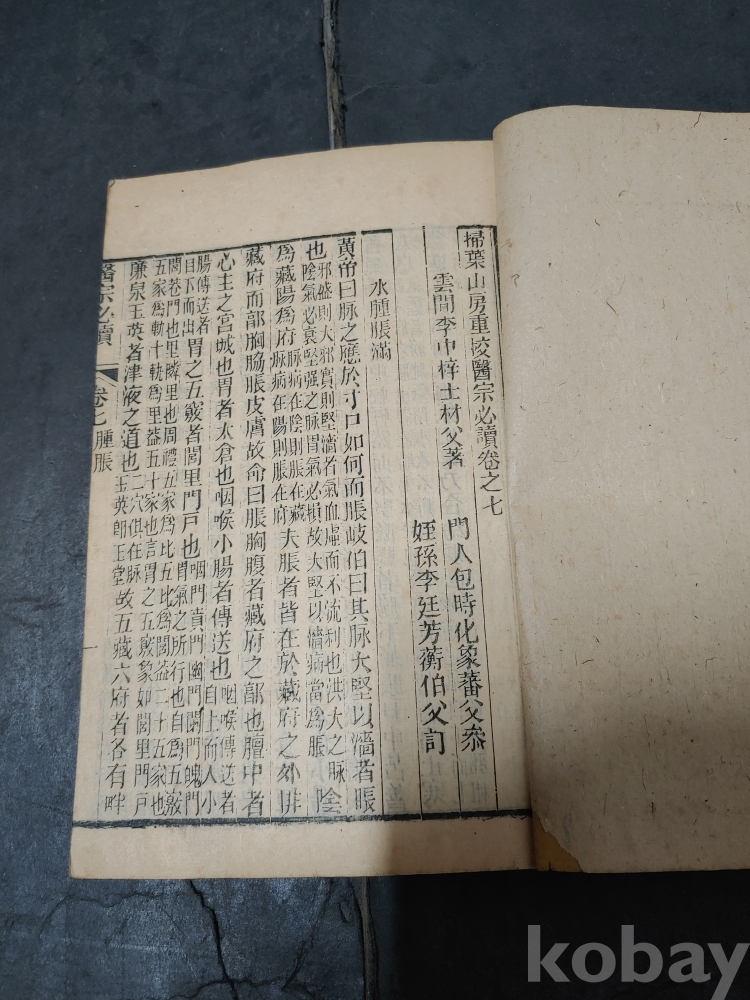 掃葉山房重校醫宗必讀卷之七
雲間李中梓士材父著
門人包時化象蕃父叅
姪孫李廷芳蘅伯父訂
水腫脹滿
黃帝曰脉之應於寸口如何而脹岐伯曰其脉大堅以濇者脹
也邪盛則大邪實則堅濇者氣血虛而不流利也洪大之脉陰氣必衰堅强之脉胃氣必損故大堅以濇病當爲脹陰
爲藏陽爲府脉病在陰則脹在藏脉病在陽則脹在府夫脹者皆在於藏府之外排
藏府而郭胸脇脹皮膚故命曰脹胸腹者藏府之郭也膻中者
心主之宮城也胃者太倉也咽喉小腸者傳送也咽喉傳送者自上而入小
腸傳送者自下而出胃之五竅者閭里門戶也咽門賁門幽門闌門魄門胃氣之所行也自爲五竅
閭巷門也里鄰里也周禮五家爲比五比爲閭益二十五家也五家爲軌十軌爲里益五十家也言胃之五竅象如閭里門戶
廉泉玉英者津液之道也二穴俱在脉玉英卽玉堂故五藏六府者各有畔
醫宗必讀
卷七
腫脹
kobay